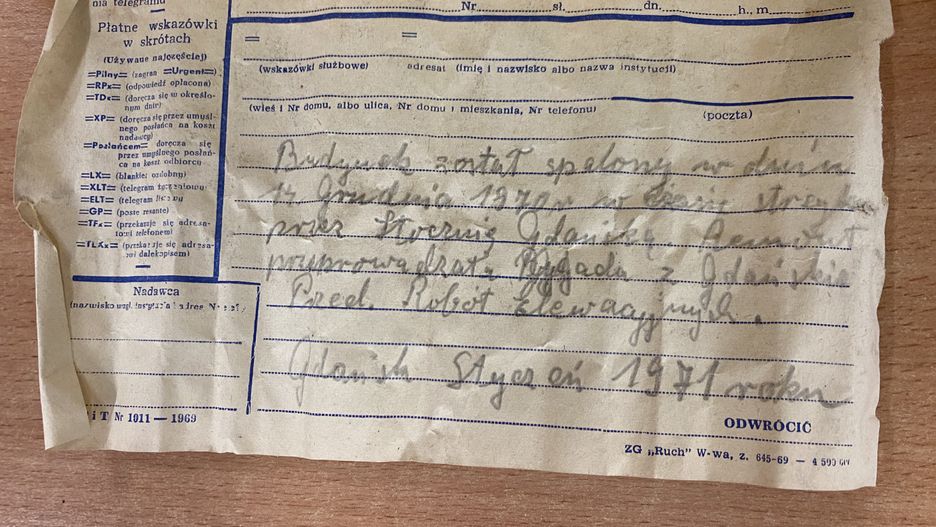 nia telegramu
Płatne wskazówki
w skrótach
(Używane najczęściej)
=Pilny= (zagran =Urgent=)
=RPx= (odpowiedź opłacona)
=TDx= (doręcza się w określo-
nym dniu)
=XP= (doręcza się przez umyśl-
nego posłańca na koszt
nadawcy)
=Posłańcem= doręcza się
przez umyślnego posłań-
ca na koszt odbiorcy
=LX= (blankiet ozdobny)
=XLT= (telegram
=ELT= (telegram listowy)
=GP= (poste restante)
=TFx= (przekazuje się adresa-
towi telefonem)
=TLXx= (przekazuje się adresa-
towi dalekopisem)
Nadawca
(nazwisko
PiT Nr 1011 — 1969
Nr sł. dn. h., m
= =
(wskazówki służbowe) adresat (imię i nazwisko albo nazwa instytucji)
(wieś i Nr domu, albo ulica, Nr domu i mieszkania, Nr telefonu) (poczta)
Budynek został spalony w dniu
Grudnia 1970r w czasie
przez Stocznię Gdańską. Remont
Brygada z Gdańskie
Przed. Robót Elewacyjnych.
Gdańsk Styczeń 1971 roku
ODWRÓCIĆ
ZG „Ruch" W-wa, z. 645-69 — 4 500